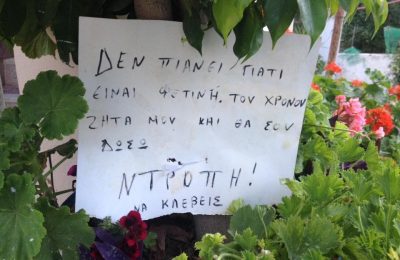 ΔΕΝ ΠΙΑΝΕΙ, ΓΙΑΤΙ
ΕΙΝΑΙ ΦΕΤΙΝΗ. ΤΟΥ ΧΡΟΝΟΥ
ΖΗΤΑ ΜΟΥ ΚΑΙ ΘΑ ΣΟΥ
ΔΩΣΩ
ΝΤΡΟΠΗ!
ΝΑ ΚΛΕΒΕΙΣ